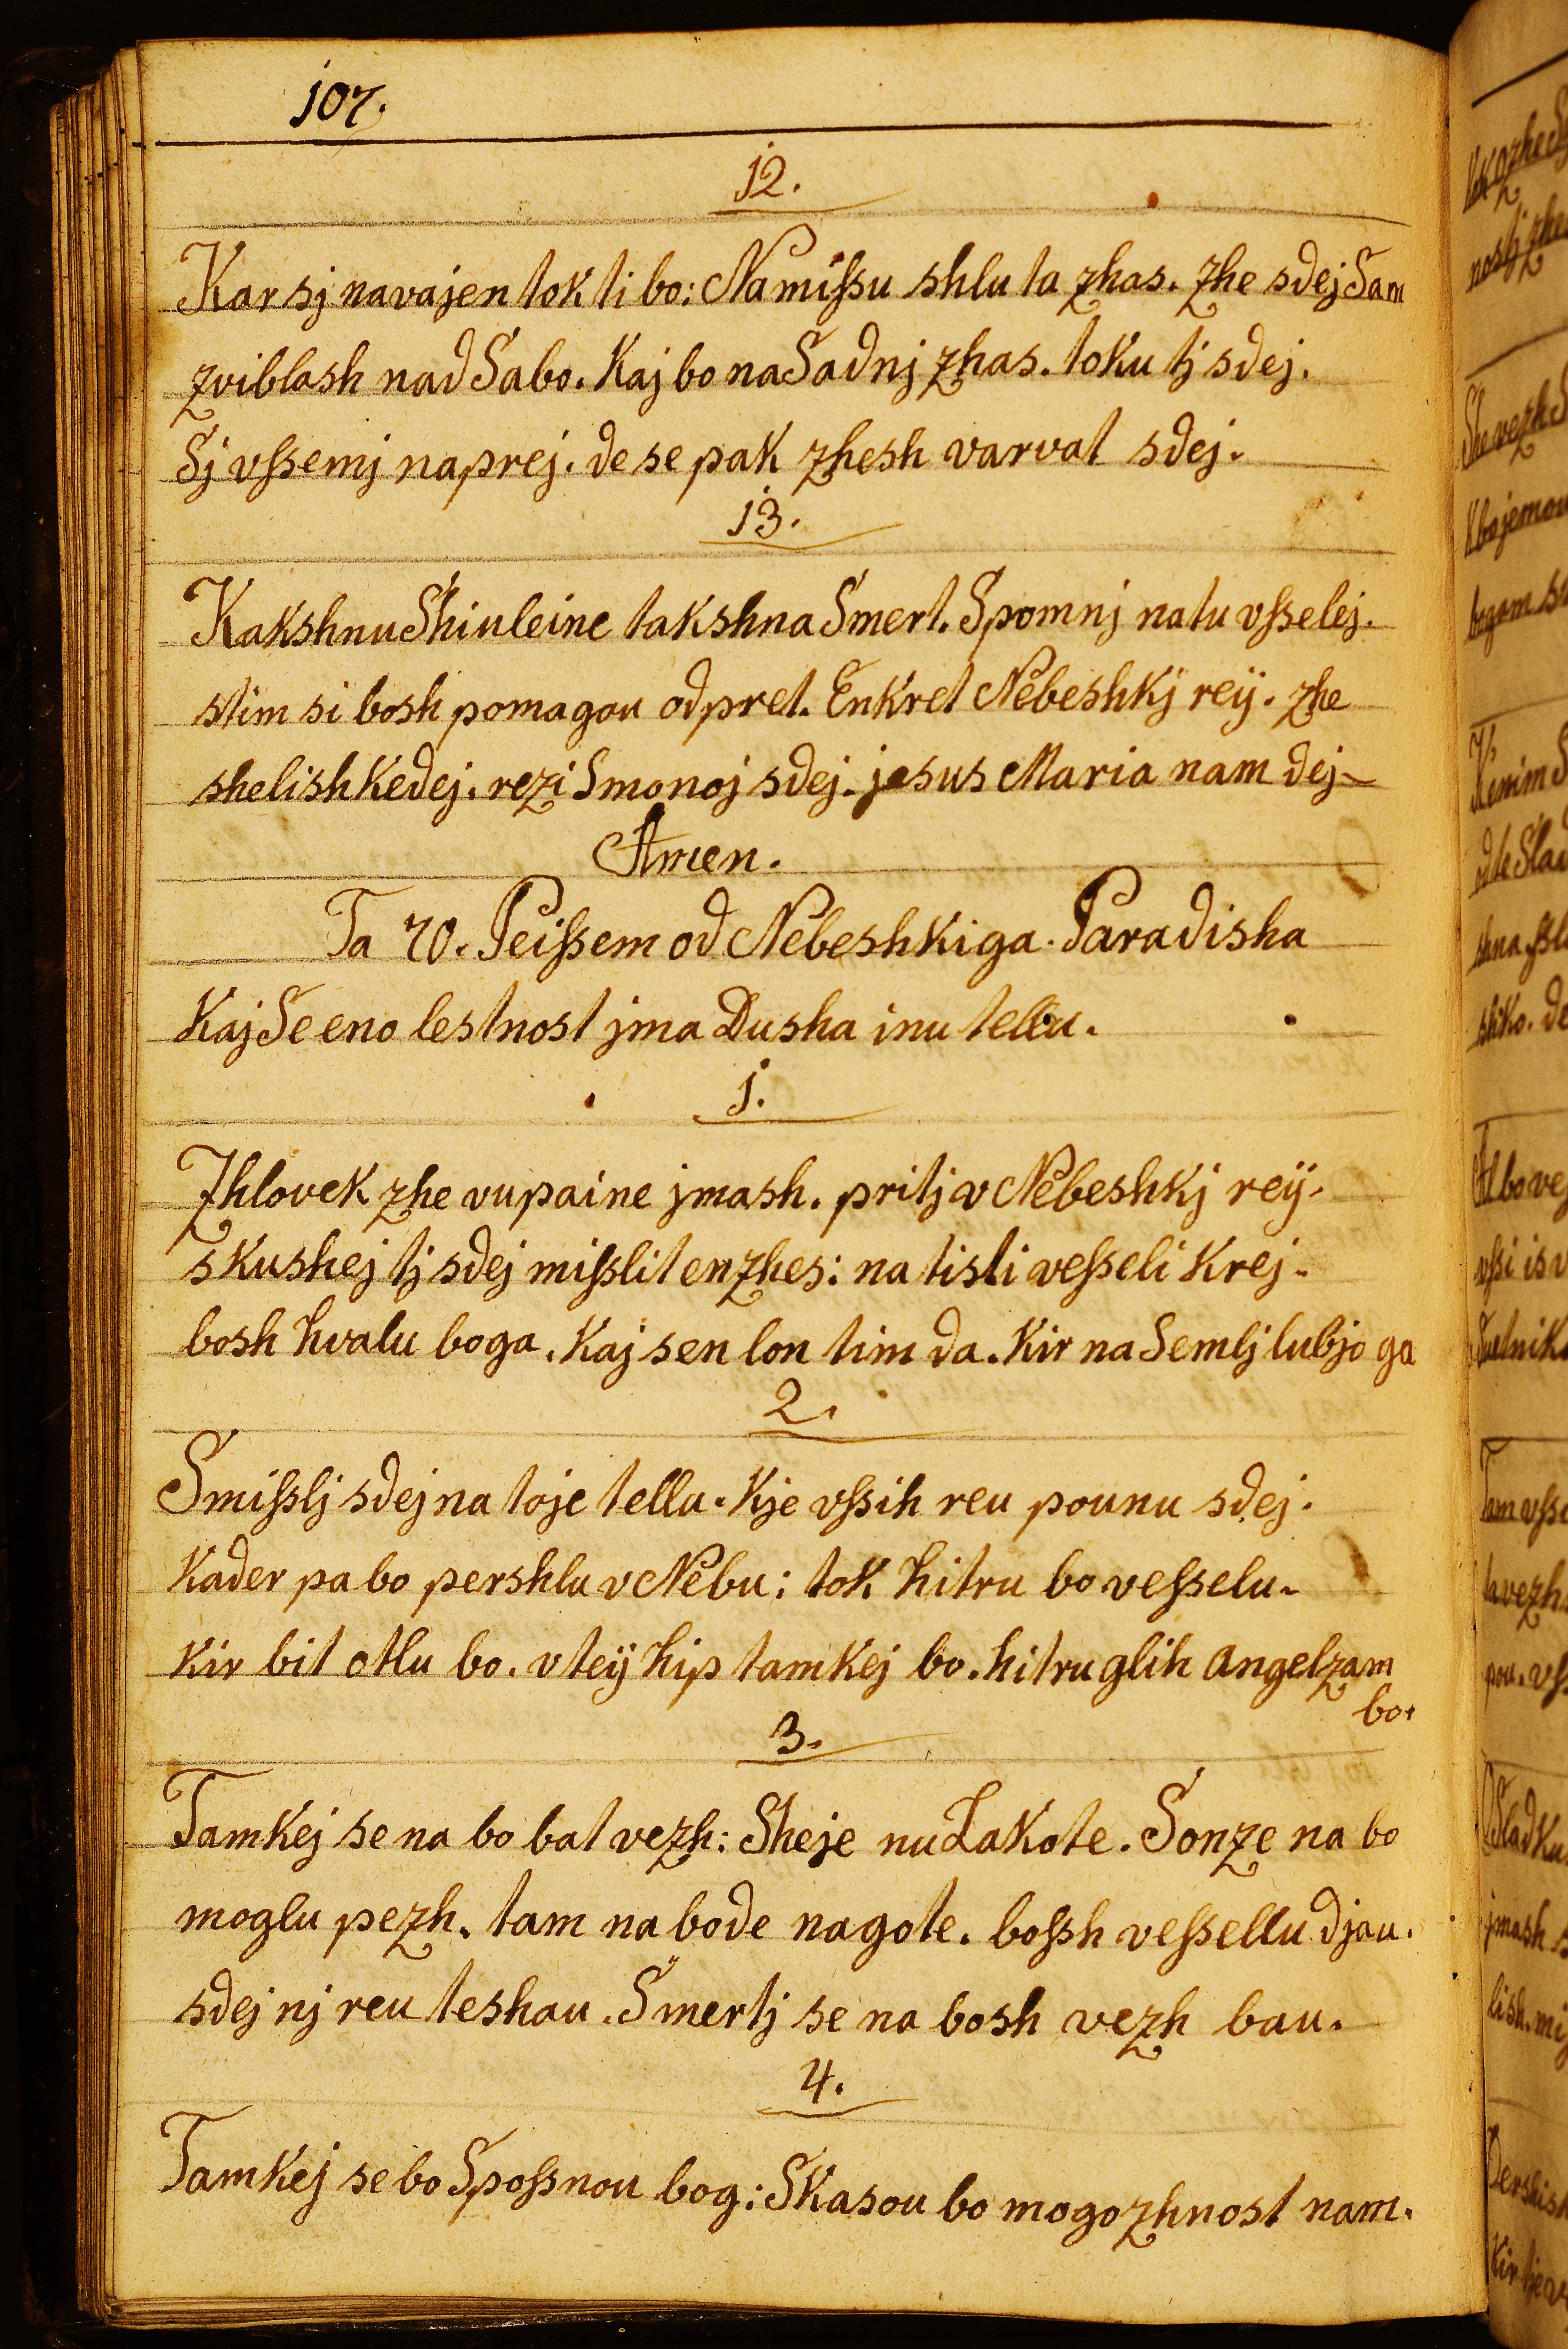 107.
12.
Kar sj navajen tok ti bo: Namiſsu shlu ta zhas. zhe sdej Sam
zviblash nad Sabo. Kaj bo na Sadnj zhas. toku tj sdej.
Sj vſsemj naprej. de se pak zhesh varvat sdej.
13.
Kakshnu Shiuleine takshna Smert. Spomnj natu vſselej.
stim si bosh pomagou odpret. Enkret Nebeshkj reÿ. zhe
shelish kedej. rezi Smonoj sdej. jesus Maria nam dej
Amen.
Ta 70. Peiſsem od Nebeshkiga. Paradisha
Kaj Se eno lestnost jma Dusha inu tellu.
1.
Zhlovek zhe vupaine jmash. pritj v Nebeshkj reÿ.
skushej tj sdej miſslit enzhes: na tisti veſseli Krej.
bosh hvalu boga. Kaj sen lon tim da. Kir na Semlj lubjo ga
2.
Smiſslj sdej na toje tellu. Kje vſsih reu pounu sdej.
Kader pa bo pershlu v Nebu: tok hitru bo veſselu.
Kir bit otlu bo. vteÿ hip tamkej bo. hitru glih angelzam
bo.
3.
Tamkej se na bo bat vezh: Sheje nu Lakote. Sonze na bo
moglu pezh. tam na bode nagote. boſsh veſsellu djau.
sdej nj reu teshau. Smertj se na bosh vezh bau.
4.
Tamkej se bo Spoſsnou bog: Skasou bo mogozhnost nam.